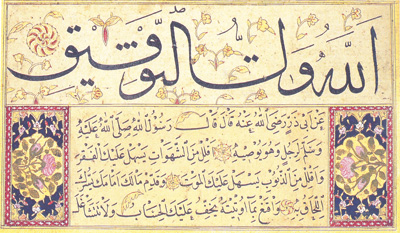 الله ولي التوفيق
عن ابى ذر رضى الله عنه قال قال رسول الله صلى الله عليه
وسلم لرجل وهو يوصيه اقلل من الشهوات يسهل عليك الفقر
و اقلل من الذنوب يسهل عليك الموت وقدم مالك امامك يسرك
اللحاق به واقنع بما اوتيته يخف عليك الحساب ولا تتشاغل